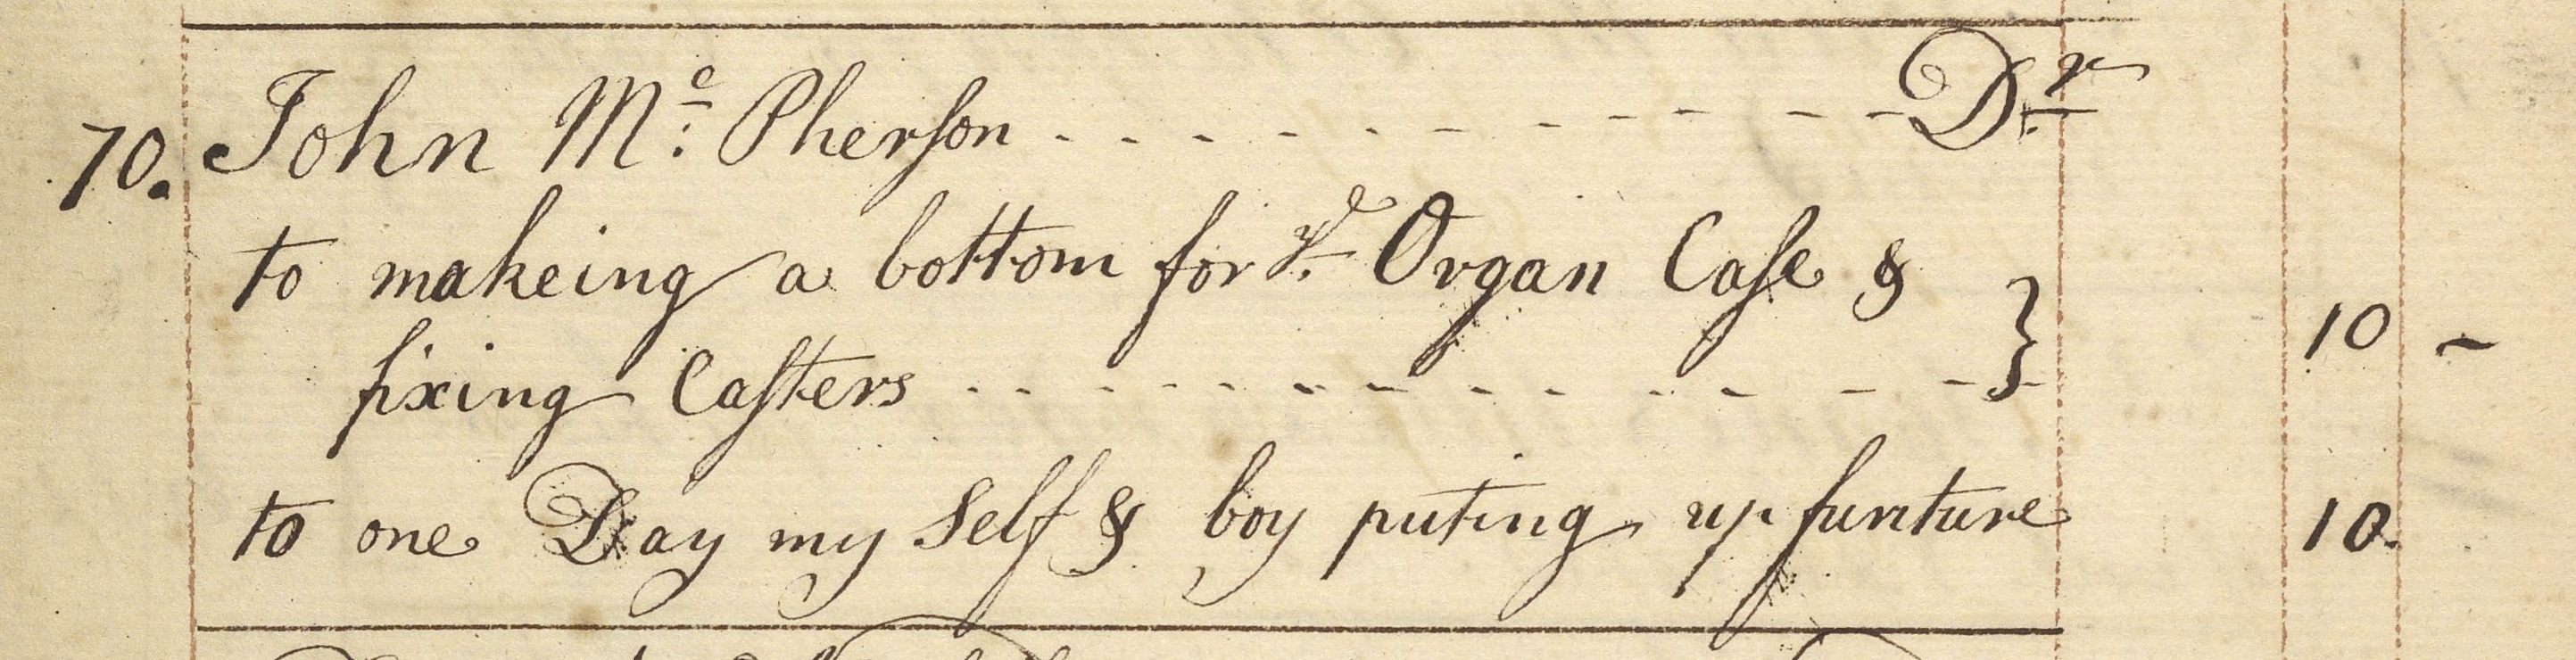 70. John Mc. Pherson - - - - - - - - - - - - Dr.
to makeing a bottom for ye. Organ Case &
fixing Casters - - - - - - - - - - - - } 10 -
to one Day my Self & boy puting up funture 10.